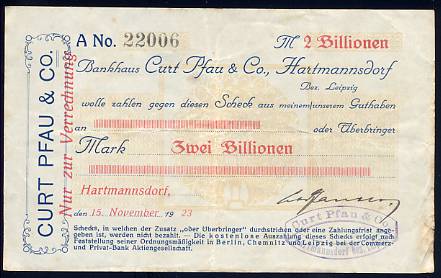 CURT PFAU & CO.
Nur zur Verrechnung
A No. 22006
M 2 Billionen
Bankhaus Curt Pfau & Co., Hartmannsdorf
Bez. Leipzig
wolle zahlen gegen diesen Scheck aus meinem/unserem Guthaben
an oder Überbringer
Mark Zwei Billionen
Hartmannsdorf,
den 15. November 1923
Schecks, in welchen der Zusatz „oder Überbringer" durchstrichen oder eine Zahlungsfrist ange-
geben ist, werden nicht bezahlt. — Die kostenlose Auszahlung dieses Schecks erfolgt nach
Feststellung seiner Ordnungsmäßigkeit in Berlin, Chemnitz und Leipzig bei der Commerz-
und Privat-Bank Aktiengesellschaft.
Curt Pfau & Co.
Hartmannsdorf Bez.